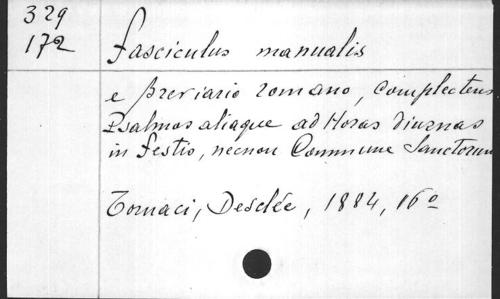 329
172 Fasciculus manualis
e Breviario romano, complectens
Psalmos aliaque ad Horas diurnas
in festis, necnon Commune Sanctorum
Tornaci, Desclée, 1884, 16º